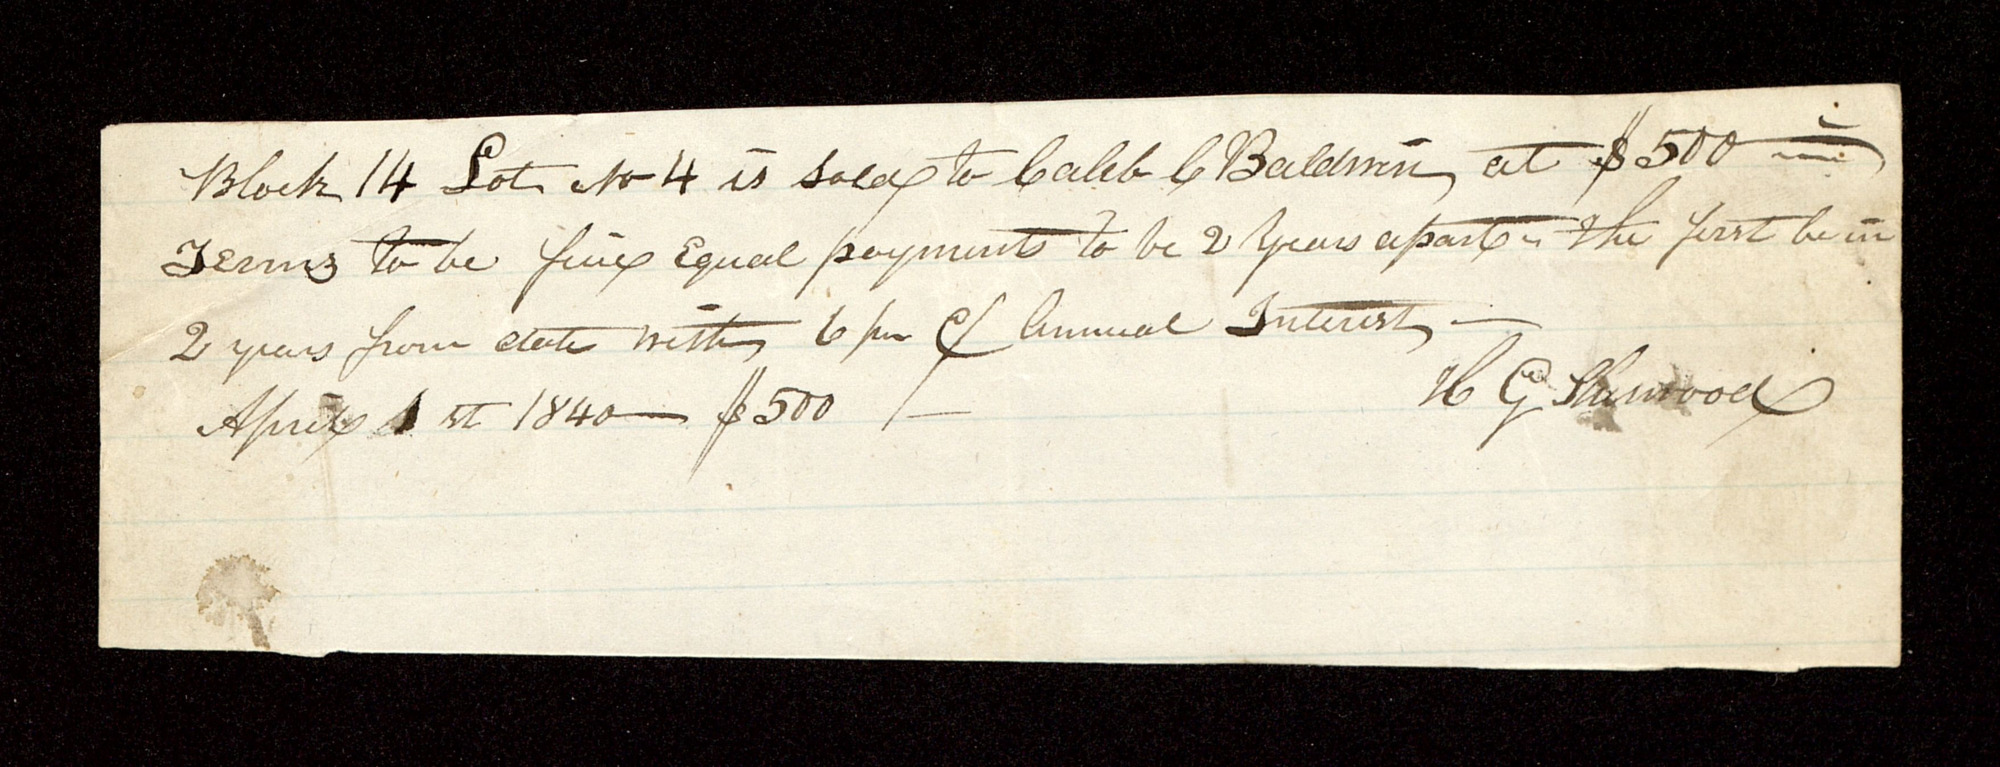 Block 14 Lot No 4 is sold to Caleb C Baldwin at $500 —
Terms to be five Equal payments to be 2 Years apart — the first be in
2 years from date with 6 per c/ Annual Interest —
April 1 st 1840 — $500 / — H G Sherwood